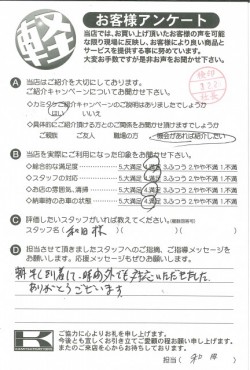 軽
お客様アンケート
当店では、お買い上げ頂いたお客様の声を可能
な限り現場に反映し、お客様により良い商品と
サービスを提供する事に努めています。
大変お手数ですが是非お声をお聞かせ下さい。
A 当店はご紹介を大切にしております。
ご紹介キャンペーンについてお聞かせ下さい。
ご紹介キャンペーンのご説明はありましたでしょうか
はい いいえ
具体的にご紹介頂ける方とのご関係をお聞かせ頂けますでしょうか
ご親族 ご友人 職場の方 機会があれば紹介したい
B 当店を実際にご利用になった印象をお聞かせ下さい。
総合的な満足度 5.大満足 4.満足 3.ふつう 2.やや不満 1.不満
スタッフの対応 5.大満足 4.満足 3.ふつう 2.やや不満 1.不満
お店の雰囲気、清掃 5.大満足 4.満足 3.ふつう 2.やや不満 1.不満
納車時のお車の状態 5.大満足 4.満足 3.ふつう 2.やや不満 1.不満
C 評価したいスタッフがいれば教えてください。
スタッフ名( 和田 様 )
D 担当させて頂きましたスタッフへのご指摘、ご指導メッセージを
お願いします。応援メッセージもぜひお願いします。
時間外でも対応いただきました。
ありがとうございます
K
ご協力に心よりお礼を申し上げます。
今後とも宜しくお引き立てご愛顧の程お願い申し上げます。
またのご来店を心からお待ちしております。
担当( 和田 )